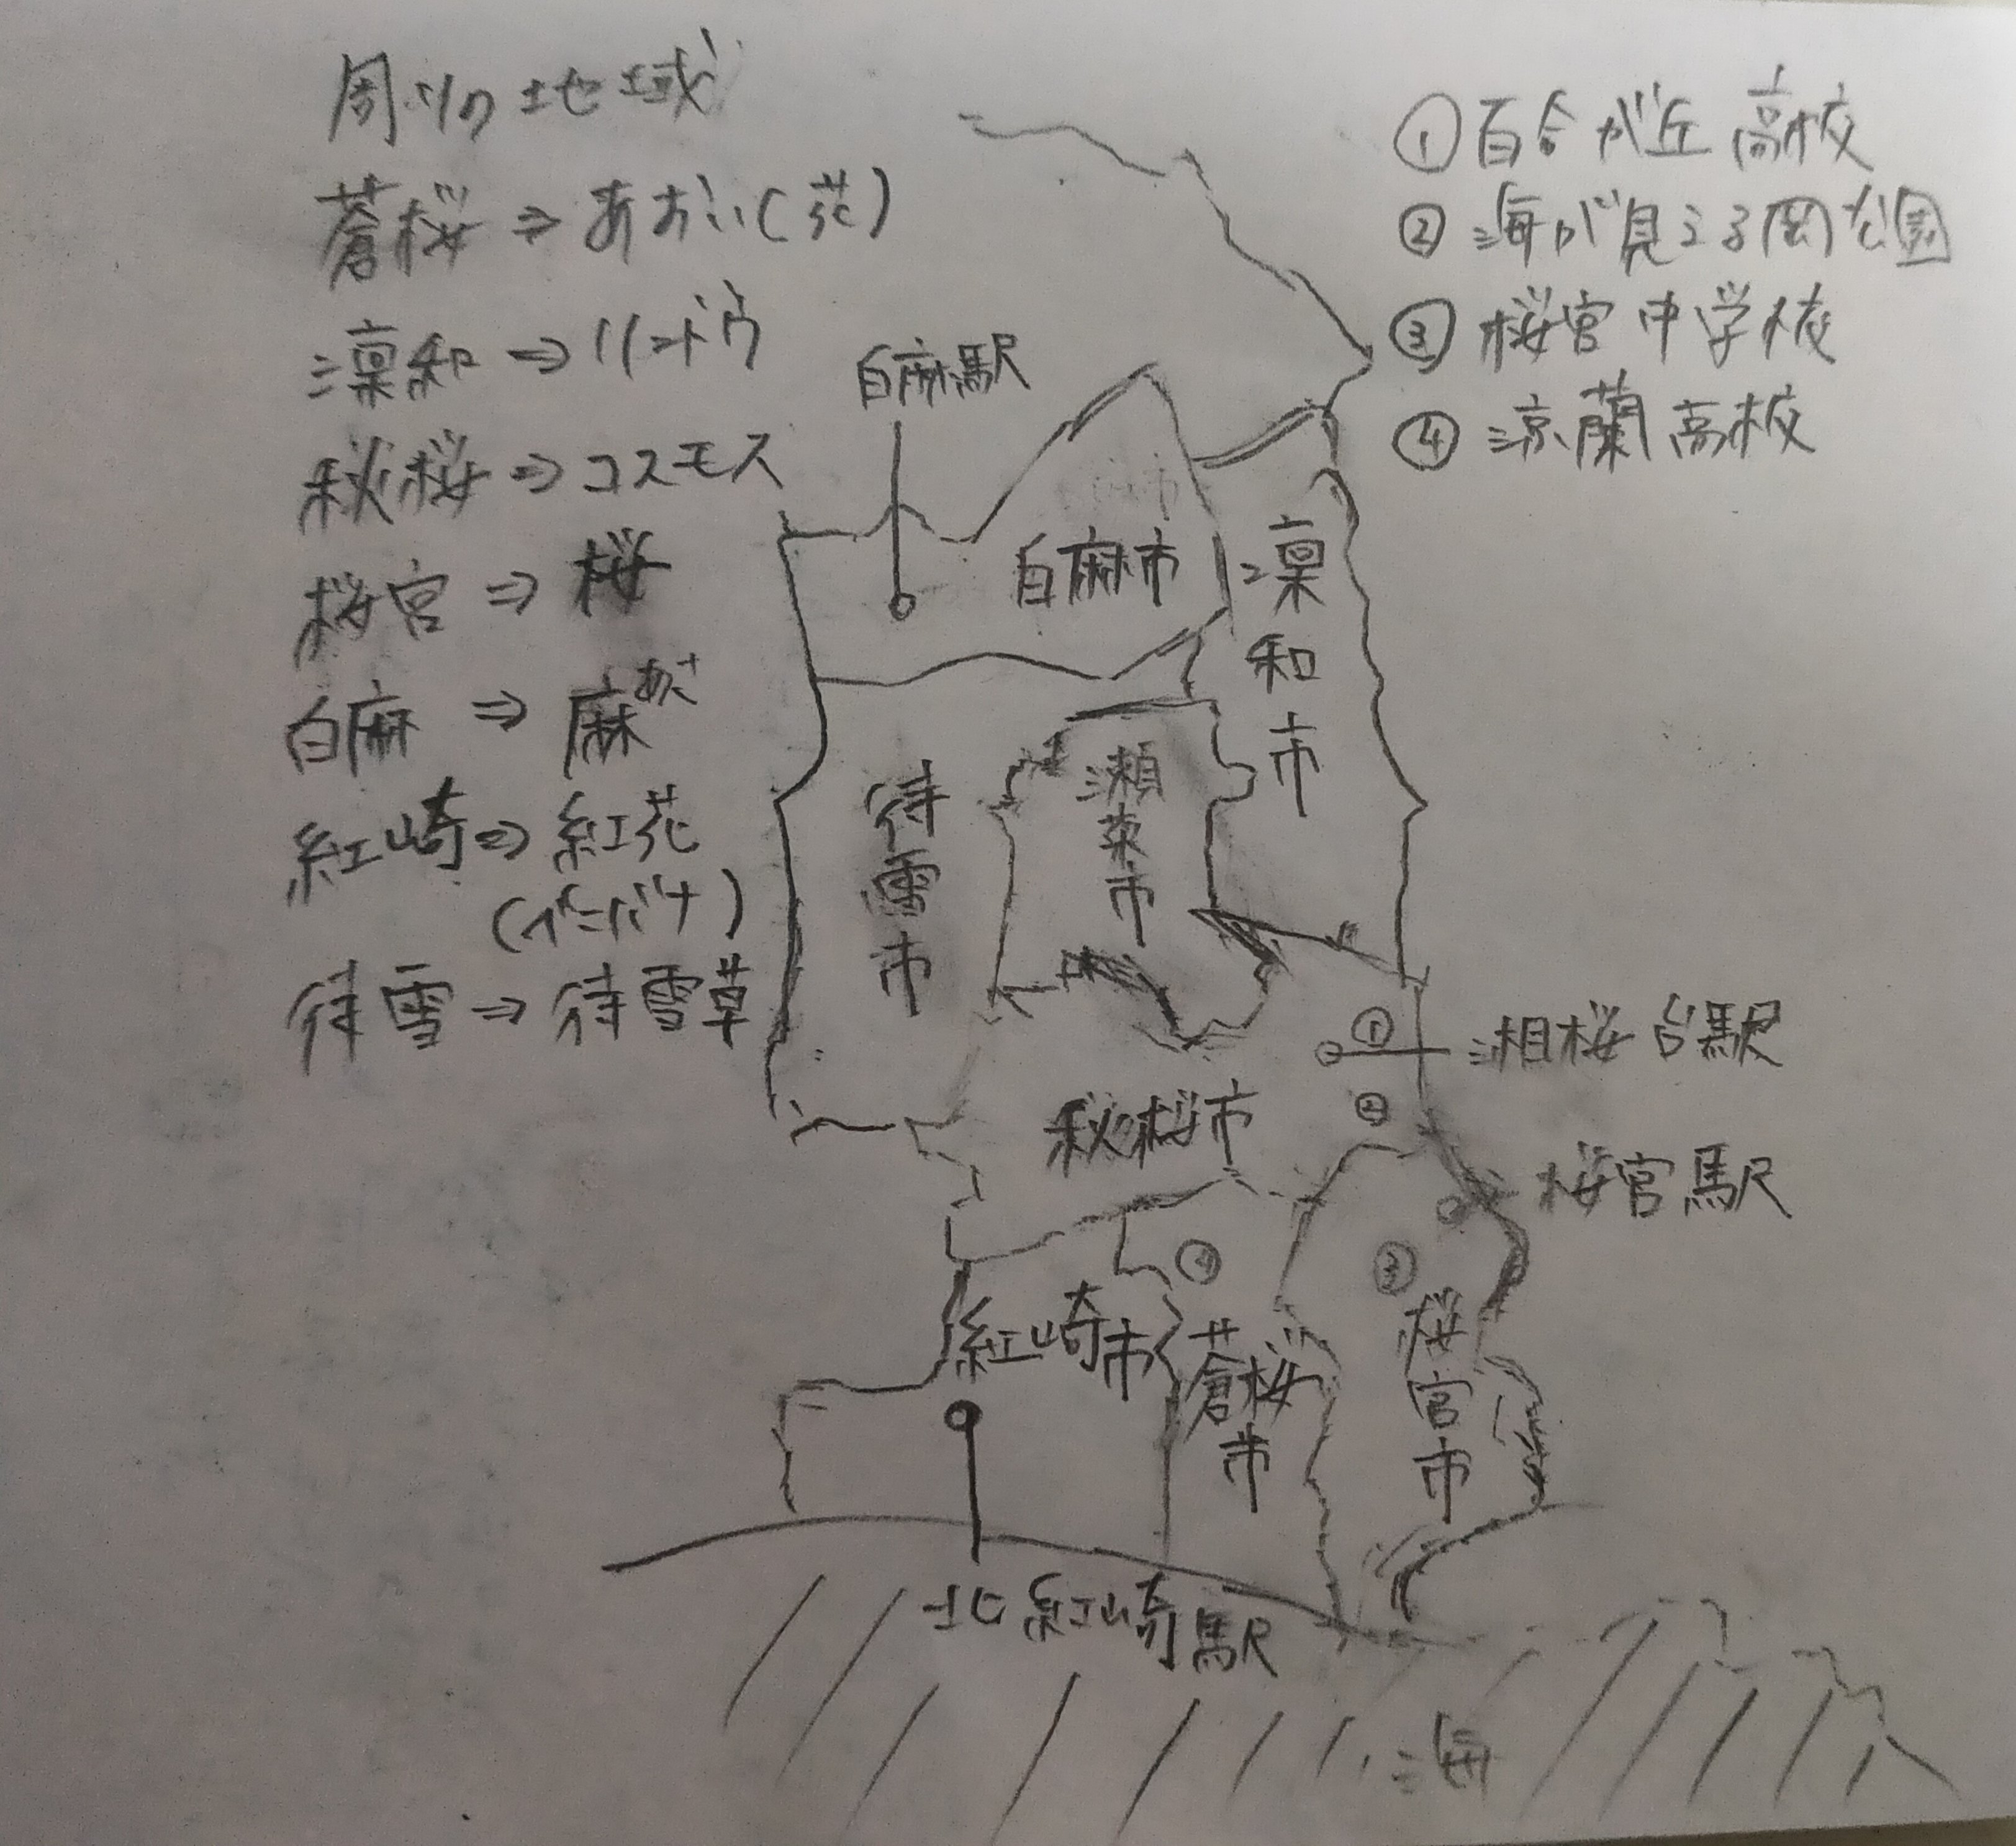 周りの地域
蒼桜⇒あおい(花)
凛和⇒リンドウ
秋桜⇒コスモス
桜宮⇒桜
白麻⇒麻
紅崎⇒紅花
(ベニバナ)
待雪⇒待雪草
①百合が丘高校
②海が見える岡公園
③桜宮中学校
④涼蘭高校
白麻駅
白麻市
凛和市
待雪市
瀬菜市
①
湘桜台駅
②
秋桜市
桜宮駅
④
③
紅崎市
蒼桜市
桜宮市
北紅崎駅
海